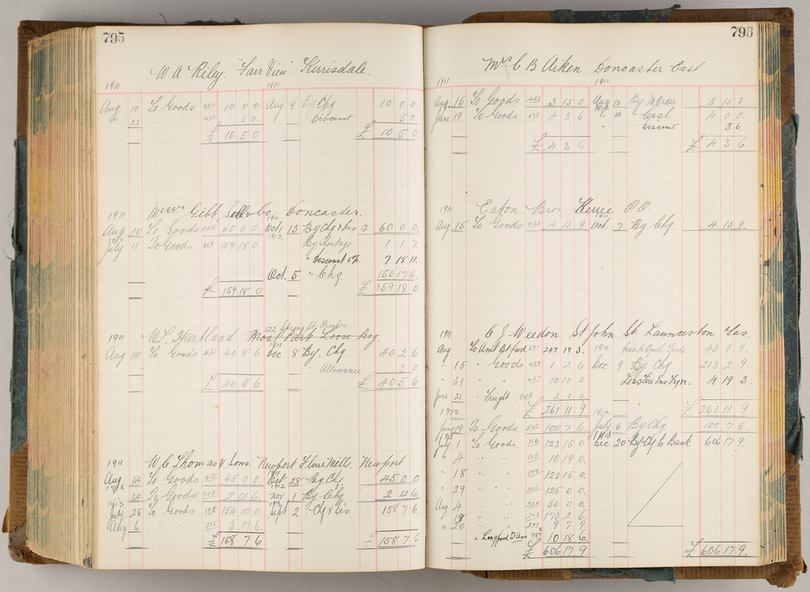 795
W A Riley. "Fair View" Kerrisdale.
1911 1911
Aug 10 To Goods 10 0 0 Aug 9 by Chq 10 0 0
22 5 0 Discount 5 0
£ 10 5 0 £ 10 5 0
1911 Messrs Gibb, Sell & Co, Doncaster.
Aug 10 To Goods 60 0 0 Oct 13 By Chq & Dis 60 0 0
July 11 To Goods 159 18 0 1 1 2
" Discount 5% 7 18 11
Oct. 5 " Chq 150 17 6
£ 159 18 0 £ 159 18 0
1911 W. S. Hartland
Aug 14 To Goods 40 5 6 Dec 8 By Chq 40 2 6
Allowance 3 0
£ 40 5 6 £ 40 5 6
1911 W. C. Thomas & Sons. Newport Flour Mill, Newport
Aug 14 To Goods 45 0 0 Oct 28 By Chq 45 0 0
14 To Goods 2 12 6 Nov 1 By Chq 2 12 6
1913 July 25 To Goods 154 10 0 Sept 2 " Chq & Dis 158 7 6
Aug 6 3 17 6
£ 158 7 6 £ 158 7 6
796
Mr C B Aiken Doncaster East
1911 1911
Aug 16 To Goods 3 15 0 Aug 3 15 0
June 19 To Goods 4 3 6 " Cash 4 0 0
Discount 3 6
£ 4 3 6 £ 4 3 6
1911 Eaton Bros Kerrie P.O.
Aug 15 To Goods 4 13 9 Oct. 7 By Chq 4 13 9
1911 C J Weedon St John St. Launceston Tas.
Aug To Amt Bt ford 247 19 3 1911 43 9 9
15 " Goods 1 2 6 Dec 9 By Chq 213 2 9
" 31 " 10 10 0 4 19 3
June 21 " Freight 2 0 0
1912 £ 261 11 9 1912 £ 261 11 9
19 To Goods 100 7 6 July 6 By Chq 100 7 6
July 1 To Goods 123 15 0 1913 Dec 20 By Chq to Bank 606 17 9
" 4 10 19 0
" 18 123 15 0
" 29 125 0 0
Aug 4 30 0 0
" 20 9 7 9
10 18 6
£ 606 17 9 £ 606 17 9